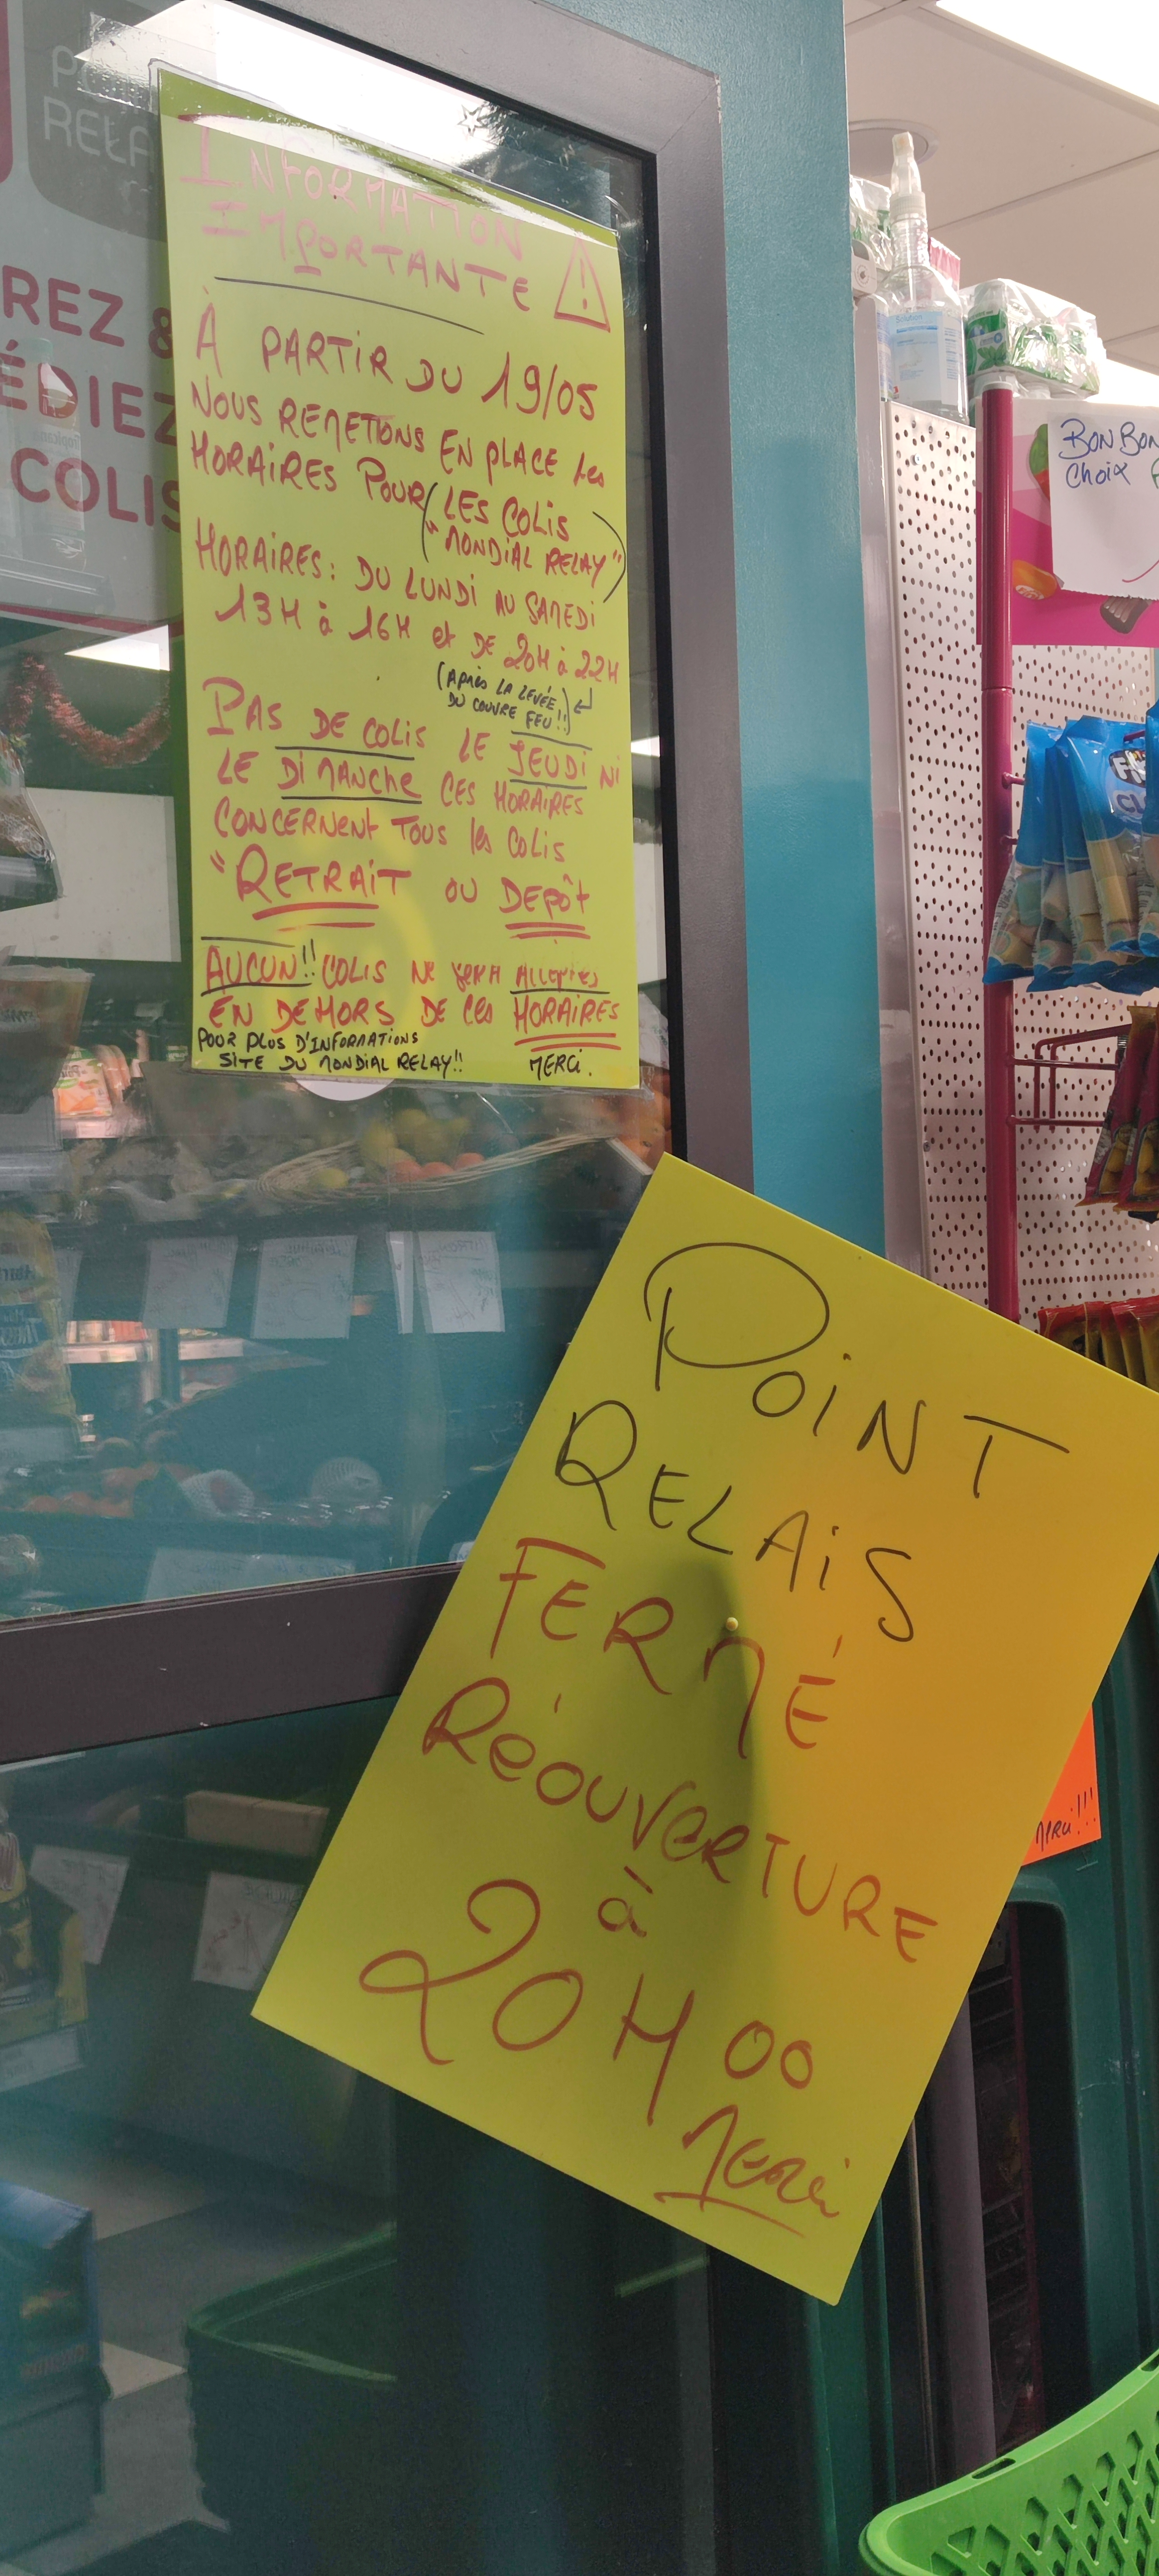 INFORMATION
IMPORTANTE
À PARTIR DU 19/05
NOUS REMETTONS EN PLACE les
HORAIRES POUR (LES COLIS
"MONDIAL RELAY")
HORAIRES: DU LUNDI AU SAMEDI
13H à 16H et DE 20H à 22H
(APRÈS LA LEVÉE
DU COUVRE FEU!!)
PAS DE COLIS LE JEUDI NI
LE DIMANCHE CES HORAIRES
CONCERNENT TOUS les COLIS
"RETRAIT OU DEPÔT
AUCUN!! COLIS NE SERA
EN DEHORS DE CES HORAIRES
POUR PLUS D'INFORMATIONS
SITE DU MONDIAL RELAY!! MERCI.
POINT
RELAIS
FERMÉ
RÉOUVERTURE
à
20H00
MERCI
RELA
REZ &
ÉDIEZ
COLIS
BONBON
Choix
MERCI!!!